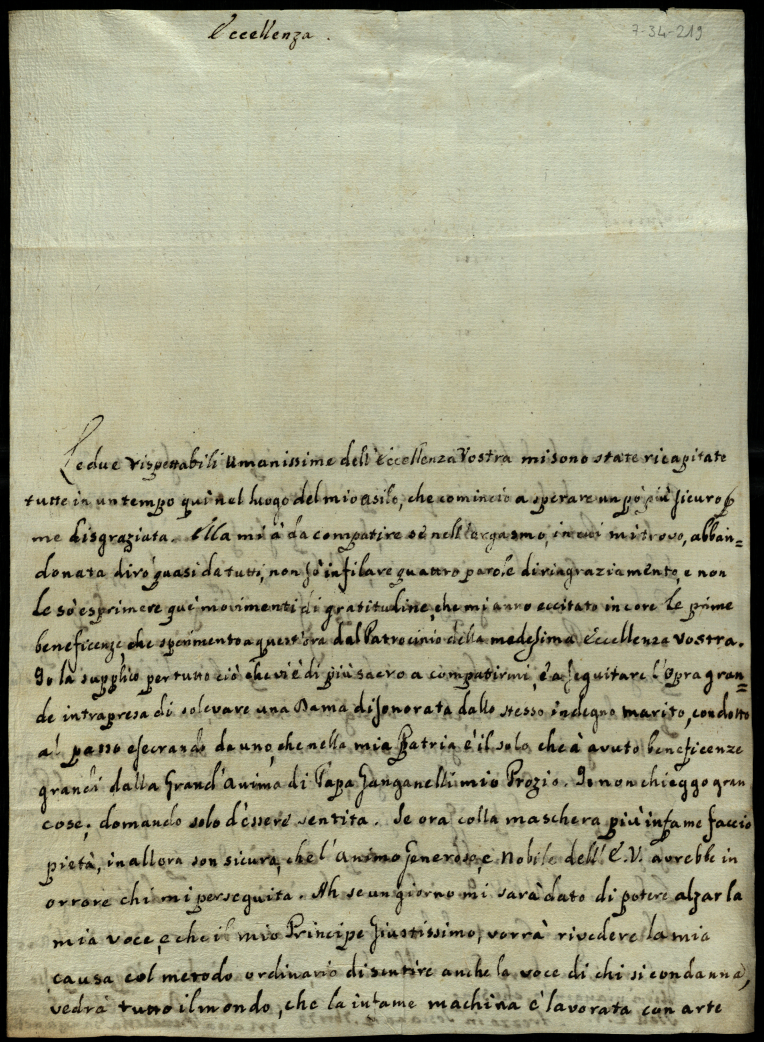 Eccellenza.
7-34-219
Le due rispettabili umanissime dell'Eccellenza Vostra mi sono state ricapitate
tutte in un tempo quì nel luogo del mio asilo, che comincio a sperare un pò più sicuro p
me disgraziata. Ella mi à da compatire sè nell'orgasmo, in cui mi trovo, abban=
donata dirò quasi da tutti, non sò infilare quattro parole di ringraziamento, e non
le sò esprimere què movimenti di gratitudine, che mi anno eccitato in core le prime
beneficenze, che sperimento a quest'ora dal Patrocinio della medesima Eccellenza Vostra.
Io la supplico per tutto ciò che vi è di più sacro a compatirmi, è a seguitare l'Opra gran=
de intrapresa di solevare una Dama disonorata dallo stesso indegno marito, condotto
al passo esecrando da uno, che nella mia Patria è il solo che à avuto beneficenze
grandi dalla Grand'Anima di Papa Ganganelli mio Prozio. Io non chieggo gran
cose; domando solo d'essere sentita. Se ora colla maschera più infame faccio
pietà, in allora son sicura, che l'Animo Generoso, e Nobile dell'E.V. avrebbe in
orrore chi mi perseguita. Ah se un giorno mi sarà dato di potere alzar la
mia voce, e che il mio Principe Giustissimo, vorrà rivedere la mia
causa col metodo ordinario di sentire anche la voce di chi si condanna,
vedrà tutto il mondo, che la infame machina è lavorata con arte